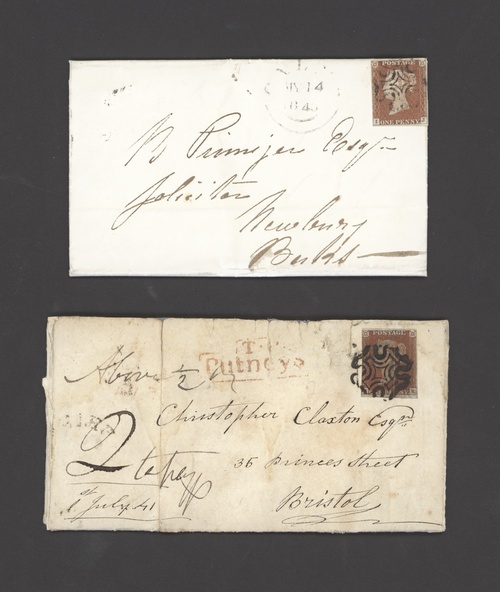 POSTAGE
ONE PENNY
14
Esqr
Solicitor
Newbury
Berks
POSTAGE
T.P
Putneys
Above 1/2
Christopher Claxton Esqr
2 to pay
36 Princes Street
1st July 41
Bristol